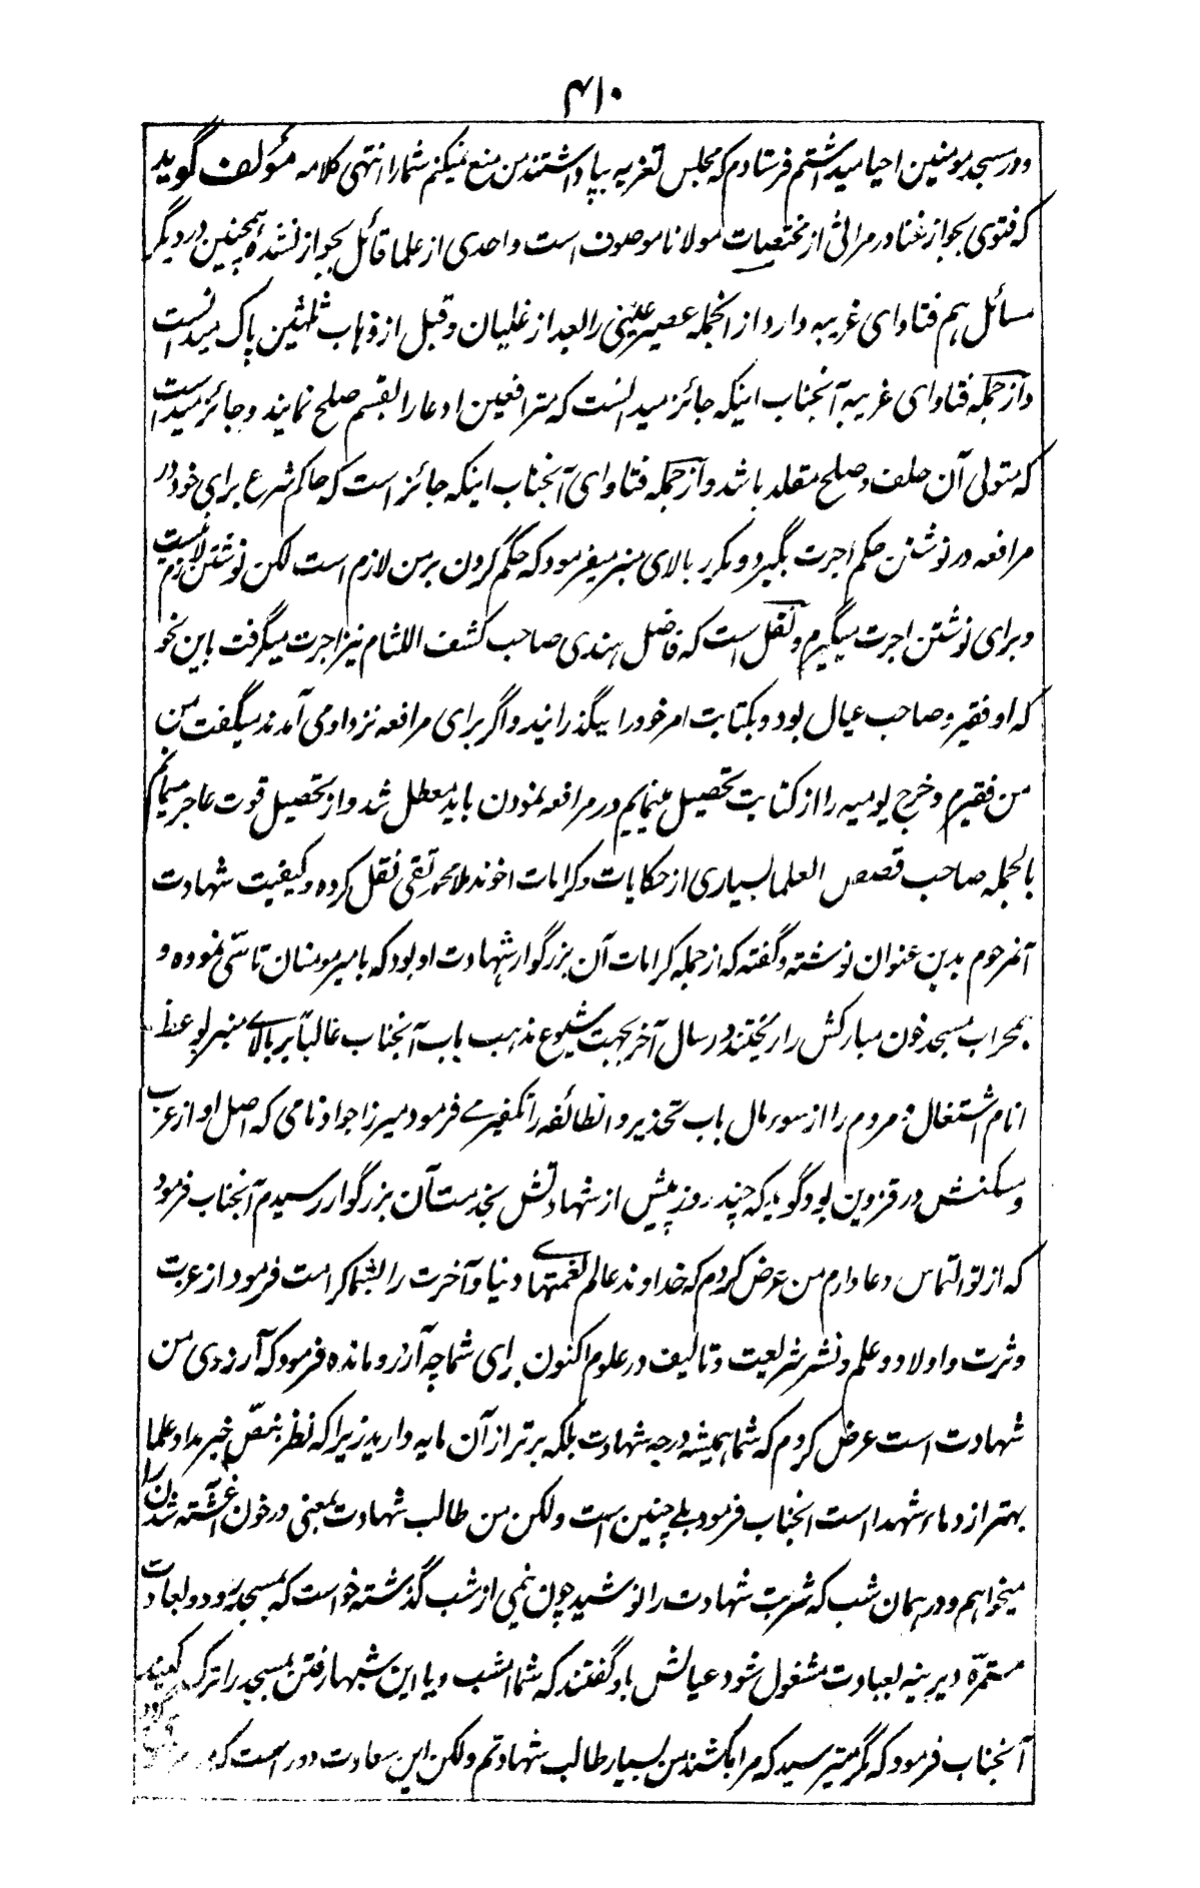 ۴۱۰
و در مسجد مومنین احیا میداشتم فرستادم که مجلس تعزیه بپا داشتند من منع نمیکنم شما را انتهی کلامه مؤلف گوید
که فتوی بجواز غنا در مراثی از مختصات مولانا موصوف است و احدی از علما قائل بجواز نشده همچنین در دیگر
مسائل هم فتاوای غریبه دارد از انجمله عصیر عنبی را بعد از غلیان و قبل از ذهاب ثلثین پاک میدانست
و از جمله فتاوای غریبه آنجناب اینکه جائز میدانست که مترافعین ادعا را بقسم صلح نمایند و جائز میدانست
که متولی آن حلف و صلح مقلد باشد و از جمله فتاوای آنجناب اینکه جائز است که حاکم شرع برای خود در
مرافعه در نوشتن حکم اجرت بگیرد و مکرر بالای منبر میفرمود که حکم کردن بر من لازم است لکن نوشتن لازم نیست
و برای نوشتن اجرت میگیرم و نقل است که فاضل هندی صاحب کشف اللثام نیز اجرت میگرفت باین نحو
که او فقیر و صاحب عیال بود و بکتابت امر خود را میگذرانید و اگر برای مرافعه نزد او می آمدند میگفت من
من فقیرم و خرج یومیه را از کتابت تحصیل مینمایم در مرافعه نمودن باید معطل شد و از تحصیل قوت عاجز میمانم
بالجمله صاحب قصص العلما بسیاری از حکایات و کرامات اخوند ملا محمد تقی نقل کرده و کیفیت شهادت
آنمرحوم بدین عنوان نوشته و گفته که از جمله کرامات آن بزرگوار شهادت او بود که بامیر مومنان تاسّی نموده و
بمحراب مسجد خون مبارکش را ریختند و در سال آخر بجهت شیوع مذهب باب آنجناب غالباً بر بالاے منبر بوعظ
انام اشتغال و مردم را از سوء مال باب تحذیر و انطائفه را تکفیرے فرمود میرزا جواد نامی که اصل او از عرب
و سکنش در قزوین بود گوید که چند روز پیش از شهادتش بخدمت آن بزرگوار رسیدم آنجناب فرمود
که از تو التماس دعا دارم من عرض کردم که خداوند عالم نعمتهاے دنیا و آخرت را بشما کرامت فرمود از عزت
و ثرت و اولاد و علم و نشر شریعت و تالیف در علوم اکنون برای شما چه آرزو مانده فرمود که آرزوی من
شهادت است عرض کردم که شما همیشه درجه شهادت بلکه برتر از آن مایه دارید زیرا که نظر بنصّ خبر مداد علما
بهتر از دماء شهدا است انجناب فرمود بلے چنین است ولکن من طالب شهادت بمعنی در خون آغشته شدن را
میخواهم و در همان شب که شربت شهادت را نوشید چون نیمی از شب گذشته خواست که بمسجد رود و بعادت
مستمرّه دیرینه بعبادت مشغول شود عیالش باو گفتند که شما امشب و یا این شبها رفتن بمسجد را ترک کنید
آنجناب فرمود که مگر میترسید که مرا بکشند من بسیار طالب شهادتم ولکن این سعادت دور است که